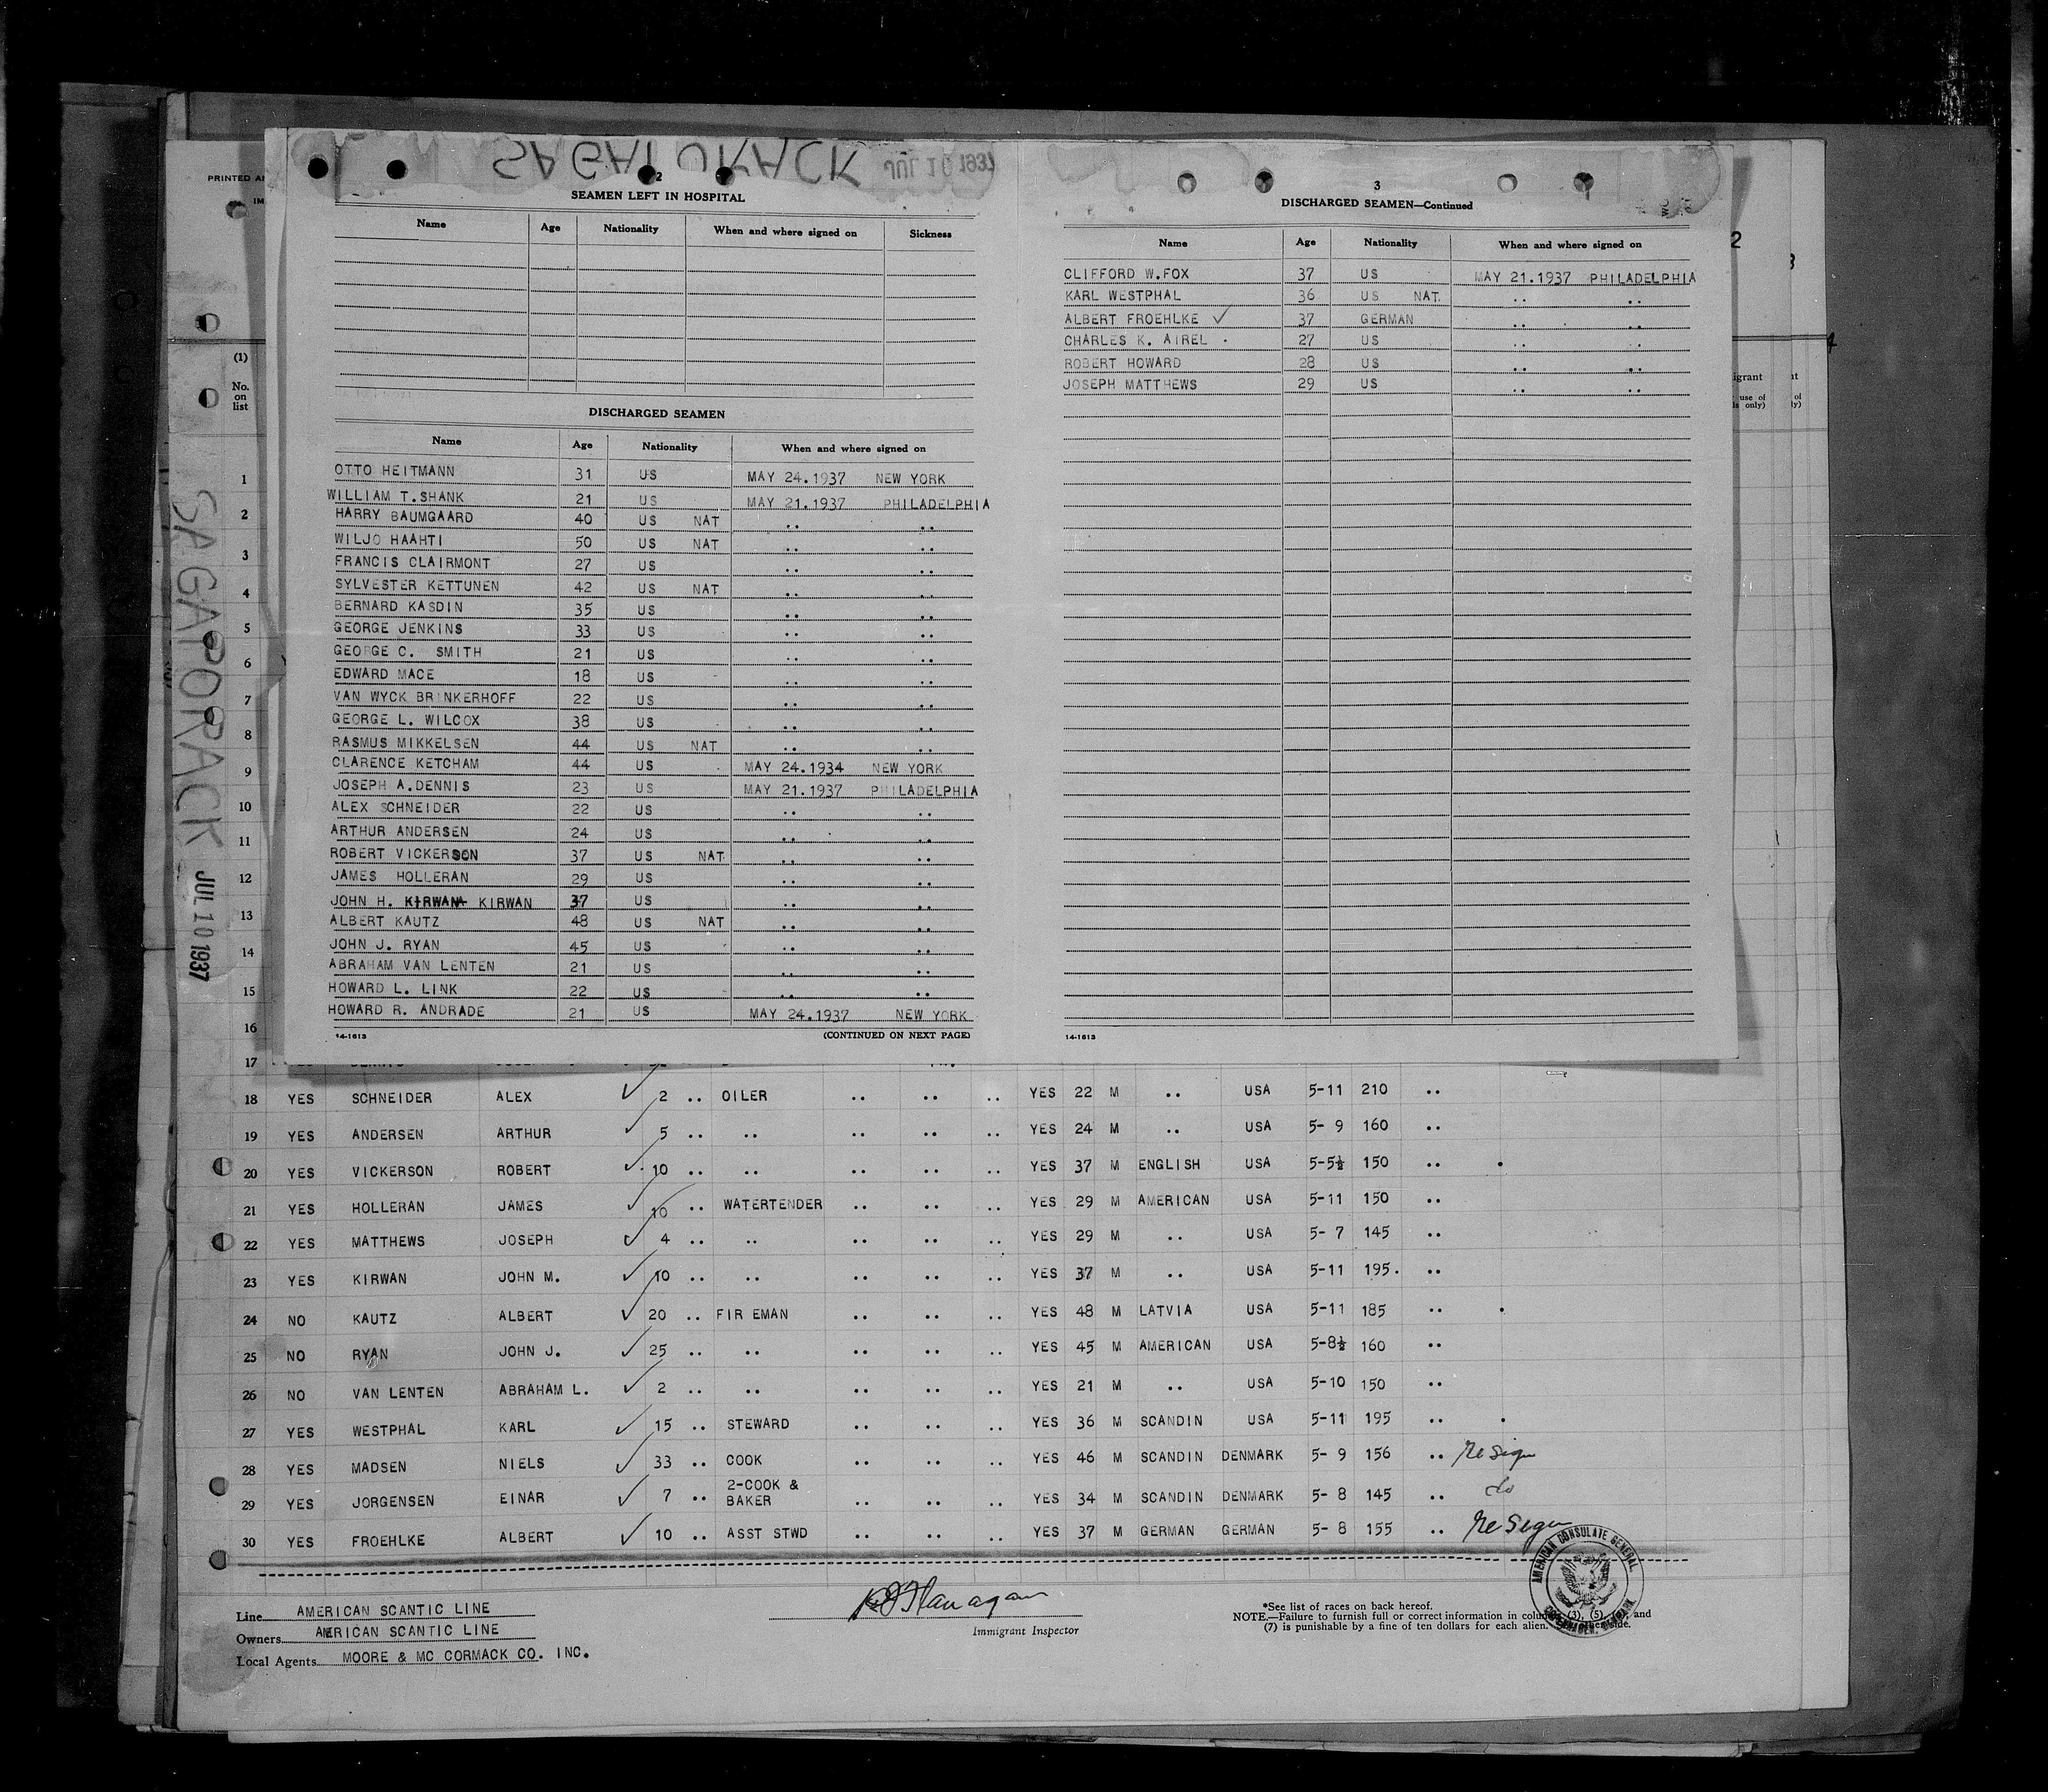 SAGAPORACK JUL 10 1937
2
SEAMEN LEFT IN HOSPITAL
Name Age Nationality When and where signed on Sickness
DISCHARGED SEAMEN
Name Age Nationality When and where signed on
OTTO HEITMANN 31 US MAY 24.1937 NEW YORK
WILLIAM T.SHANK 21 US MAY 21.1937 PHILADELPHIA
HARRY BAUMGAARD 40 US NAT .. ..
WILJO HAAHTI 50 US NAT .. ..
FRANCIS CLAIRMONT 27 US .. ..
SYLVESTER KETTUNEN 42 US NAT .. ..
BERNARD KASDIN 35 US .. ..
GEORGE JENKINS 33 US .. ..
GEORGE C. SMITH 21 US .. ..
EDWARD MACE 18 US .. ..
VAN WYCK BRINKERHOFF 22 US .. ..
GEORGE L. WILCOX 38 US .. ..
RASMUS MIKKELSEN 44 US NAT .. ..
CLARENCE KETCHAM 44 US MAY 24.1934 NEW YORK
JOSEPH A.DENNIS 23 US MAY 21.1937 PHILADELPHIA
ALEX SCHNEIDER 22 US .. ..
ARTHUR ANDERSEN 24 US .. ..
ROBERT VICKERSON 37 US NAT .. ..
JAMES HOLLERAN 29 US .. ..
JOHN H. KIRWAN KIRWAN 37 US .. ..
ALBERT KAUTZ 48 US NAT .. ..
JOHN J. RYAN 45 US .. ..
ABRAHAM VAN LENTEN 21 US .. ..
HOWARD L. LINK 22 US .. ..
HOWARD R. ANDRADE 21 US MAY 24.1937 NEW YORK
14-1613 (CONTINUED ON NEXT PAGE)
3
DISCHARGED SEAMEN—Continued
Name Age Nationality When and where signed on
CLIFFORD W.FOX 37 US MAY 21.1937 PHILADELPHIA
KARL WESTPHAL 36 US NAT. .. ..
ALBERT FROEHLKE ✓ 37 GERMAN .. ..
CHARLES K. AIREL . 27 US .. ..
ROBERT HOWARD 28 US .. ..
JOSEPH MATTHEWS 29 US .. ..
14-1613
PRINTED
IM
(1)
No.
on
list
1
2
3
4
5
6
7
8
9
10
11
12
13
14
15
16
17
SAGAPORACK JUL 10 1937
2
3
4
use of
only)
of
18 YES SCHNEIDER ALEX ✓ 2 .. OILER .. .. .. YES 22 M .. USA 5-11 210 ..
19 YES ANDERSEN ARTHUR ✓ 5 .. .. .. .. .. YES 24 M .. USA 5- 9 160 ..
20 YES VICKERSON ROBERT ✓ 10 .. .. .. .. .. YES 37 M ENGLISH USA 5-5½ 150 .. .
21 YES HOLLERAN JAMES ✓ 10 .. WATERTENDER .. .. .. YES 29 M AMERICAN USA 5-11 150 ..
22 YES MATTHEWS JOSEPH ✓ 4 .. .. .. .. .. YES 29 M .. USA 5- 7 145 ..
23 YES KIRWAN JOHN M. ✓ 10 .. .. .. .. .. YES 37 M .. USA 5-11 195. ..
24 NO KAUTZ ALBERT ✓ 20 .. FIR EMAN .. .. .. YES 48 M LATVIA USA 5-11 185 .. .
25 NO RYAN JOHN J. ✓ 25 .. .. .. .. .. YES 45 M AMERICAN USA 5-8½ 160 ..
26 NO VAN LENTEN ABRAHAM L. ✓ 2 .. .. .. .. .. YES 21 M .. USA 5-10 150 ..
27 YES WESTPHAL KARL ✓ 15 .. STEWARD .. .. .. YES 36 M SCANDIN USA 5-11 195 .. .
28 YES MADSEN NIELS ✓ 33 .. COOK .. .. .. YES 46 M SCANDIN DENMARK 5- 9 156 .. Re Sign
29 YES JORGENSEN EINAR ✓ 7 .. 2-COOK & BAKER .. .. .. YES 34 M SCANDIN DENMARK 5- 8 145 .. do
30 YES FROEHLKE ALBERT ✓ 10 .. ASST STWD .. .. .. YES 37 M GERMAN GERMAN 5- 8 155 .. Re Sign
AMERICAN CONSULATE GENERAL
Line AMERICAN SCANTIC LINE
Owners AMERICAN SCANTIC LINE
Local Agents MOORE & MC CORMACK CO. INC.
Flanagan
Immigrant Inspector
*See list of races on back hereof.
NOTE.—Failure to furnish full or correct information in columns (3), (5), and
(7) is punishable by a fine of ten dollars for each alien.